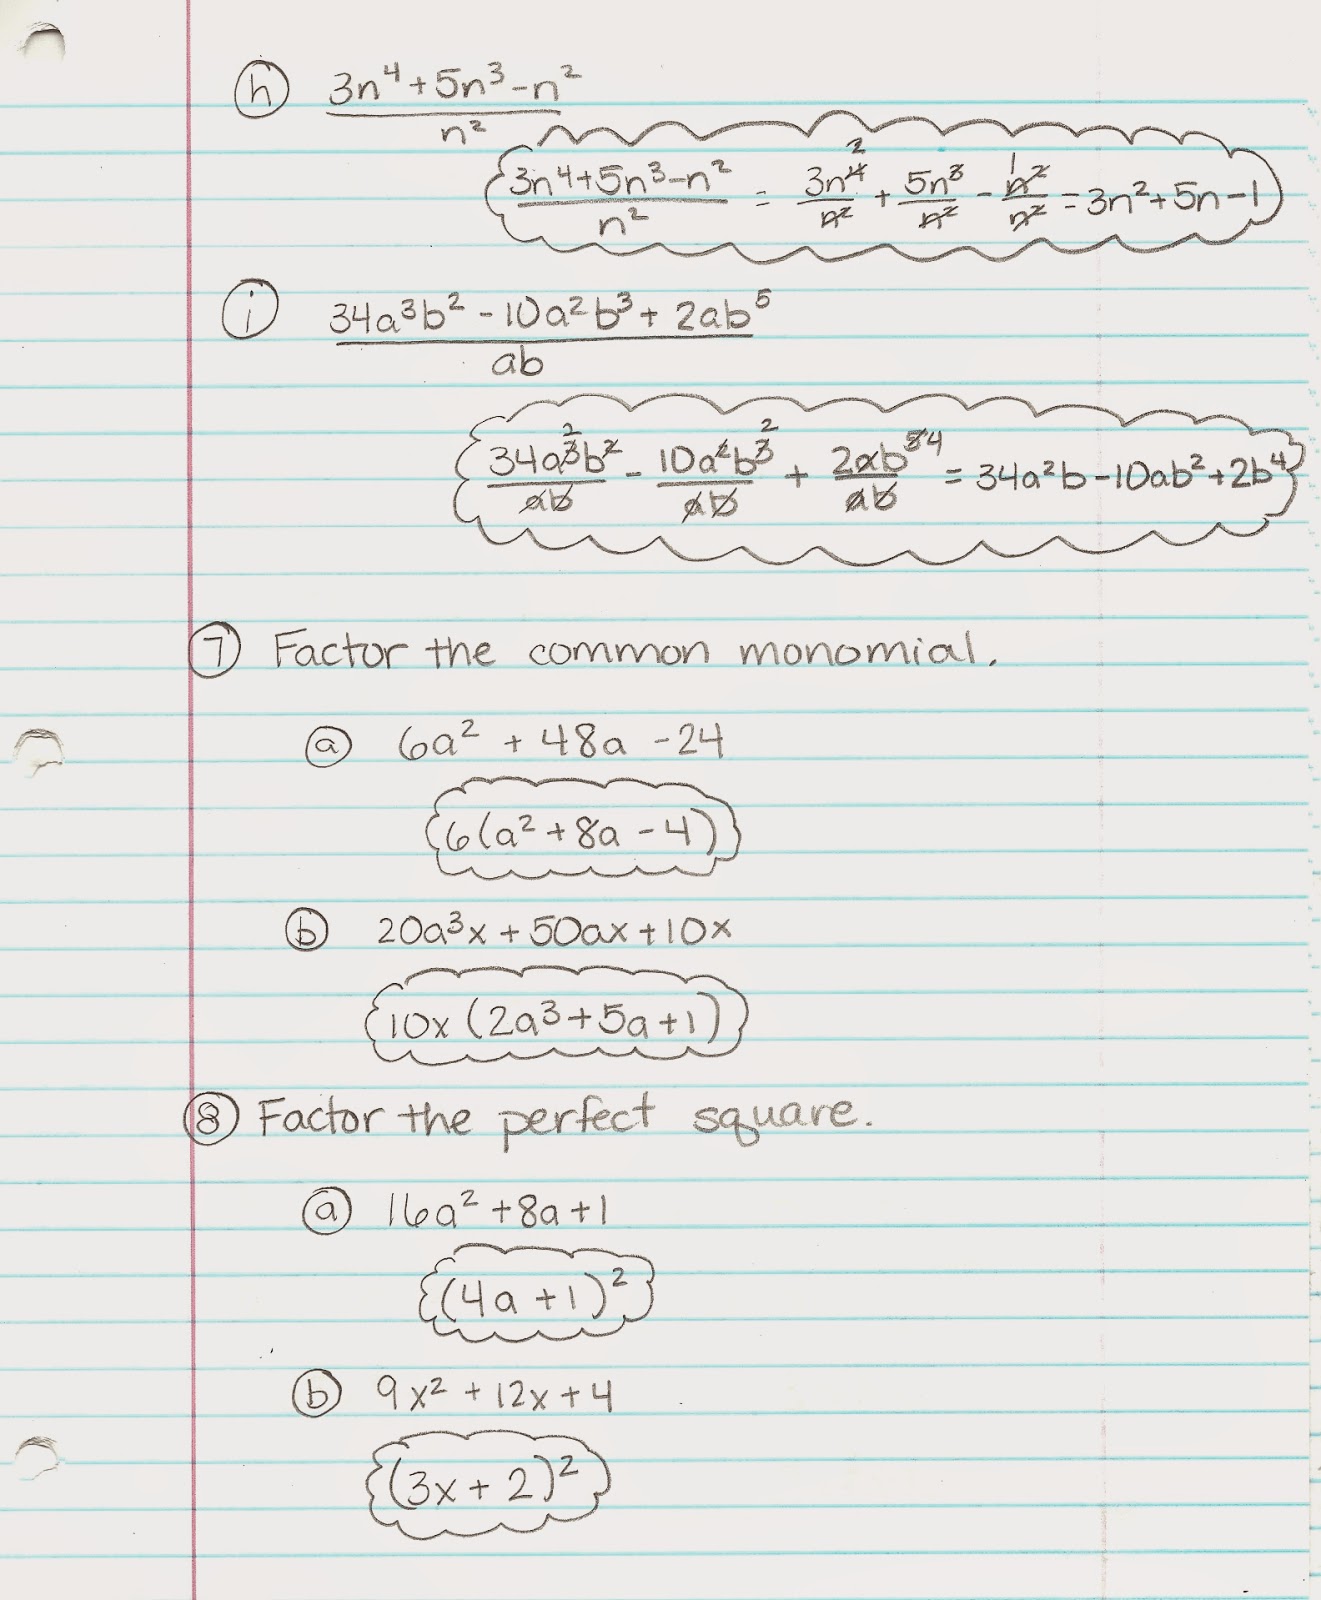 h (3n⁴+5n³-n²)/n²
(3n⁴+5n³-n²)/n² = 3n⁴/n² + 5n³/n² - n²/n² = 3n²+5n-1
i (34a³b² - 10a²b³ + 2ab⁵)/ab
34a³b²/ab - 10a²b³/ab + 2ab⁵/ab = 34a²b-10ab²+2b⁴
7 Factor the common monomial.
a 6a² + 48a - 24
6(a² + 8a - 4)
b 20a³x + 50ax + 10x
10x (2a³+5a+1)
8 Factor the perfect square.
a 16a² + 8a + 1
(4a + 1)²
b 9x² + 12x + 4
(3x + 2)²